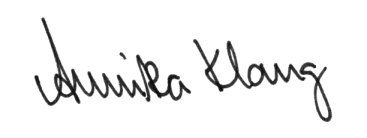 Annika Klang